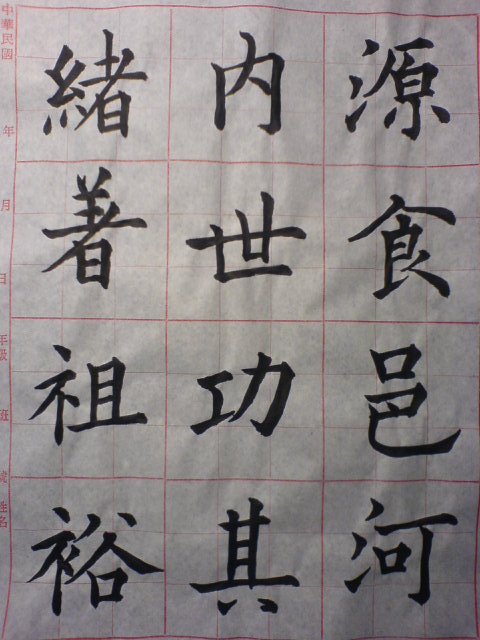 源食邑河
内世功其
緒著祖裕
中華民國 年 月 日 年級 班 號 姓名